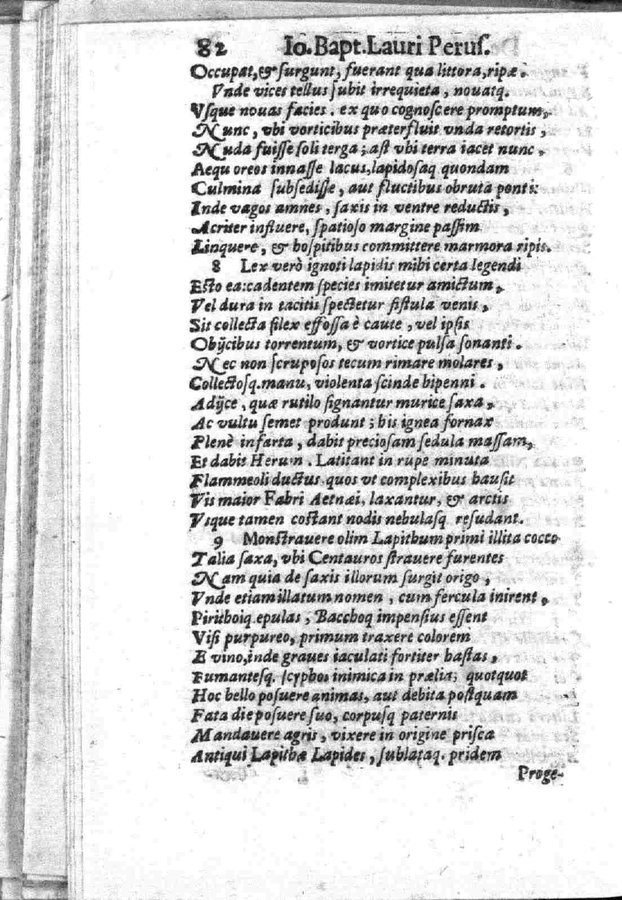 82 Io. Bapt. Lauri Perus.
Occupat, & surgunt, fuerant qua littora, ripæ.
Vnde vices tellus subit irrequieta, nouatq.
Vsque nouas facies. ex quo cognoscere promptum,
Nunc, vbi vorticibus præterfluit vnda retortis,
Nuda fuisse soli terga; ast vbi terra iacet nunc,
Aequoreos innasse lacus, lapidosaq quondam
Culmina subsedisse, aut fluctibus obruta ponti:
Inde vagos amnes, saxis in ventre reductis,
Acriter influere, spatioso margine passim
Linquere, & hospitibus committere marmora ripis.
8 Lex verò ignoti lapidis mihi certa legendi
Esto ea: cadentem species imitetur amictum,
Vel dura in tacitis spectetur fistula venis,
Sit collecta silex effossa è caute, vel ipsis
Obijcibus torrentum, & vortice pulsa sonanti.
Nec non scruposos tecum rimare molares,
Collectosq. manu, violenta scinde bipenni.
Adijce, quæ rutilo signantur murice saxa,
Ac vultu semet produnt; his ignea fornax
Plenè infarta, dabit preciosam sedula massam,
Et dabit Herum. Latitant in rupe minuta
Flammeoli ductus quos vt complexibus hausit
Vis maior Fabri Aetnæi, laxantur, & arctis
Vsque tamen costant nodis nebulasq resudant.
9 Monstrauere olim Lapithum primi illita cocco
Talia saxa, vbi Centauros strauere furentes
Nam quia de saxis illorum surgit origo,
Vnde etiam illatum nomen, cum fercula inirent,
Pirithoiq epulas, Bacchoq impensius essent
Visi purpureo, primum traxere colorem
E vino, inde graues iaculati fortiter hastas,
Fumantesq. scyphos inimica in prælia; quotquot
Hoc bello posuere animas, aut debita postquam
Fata die posuere suo, corpusq paternis
Mandauere agris, vixere in origine prisca
Antiqui Lapithæ Lapides, sublataq. pridem
Proge-